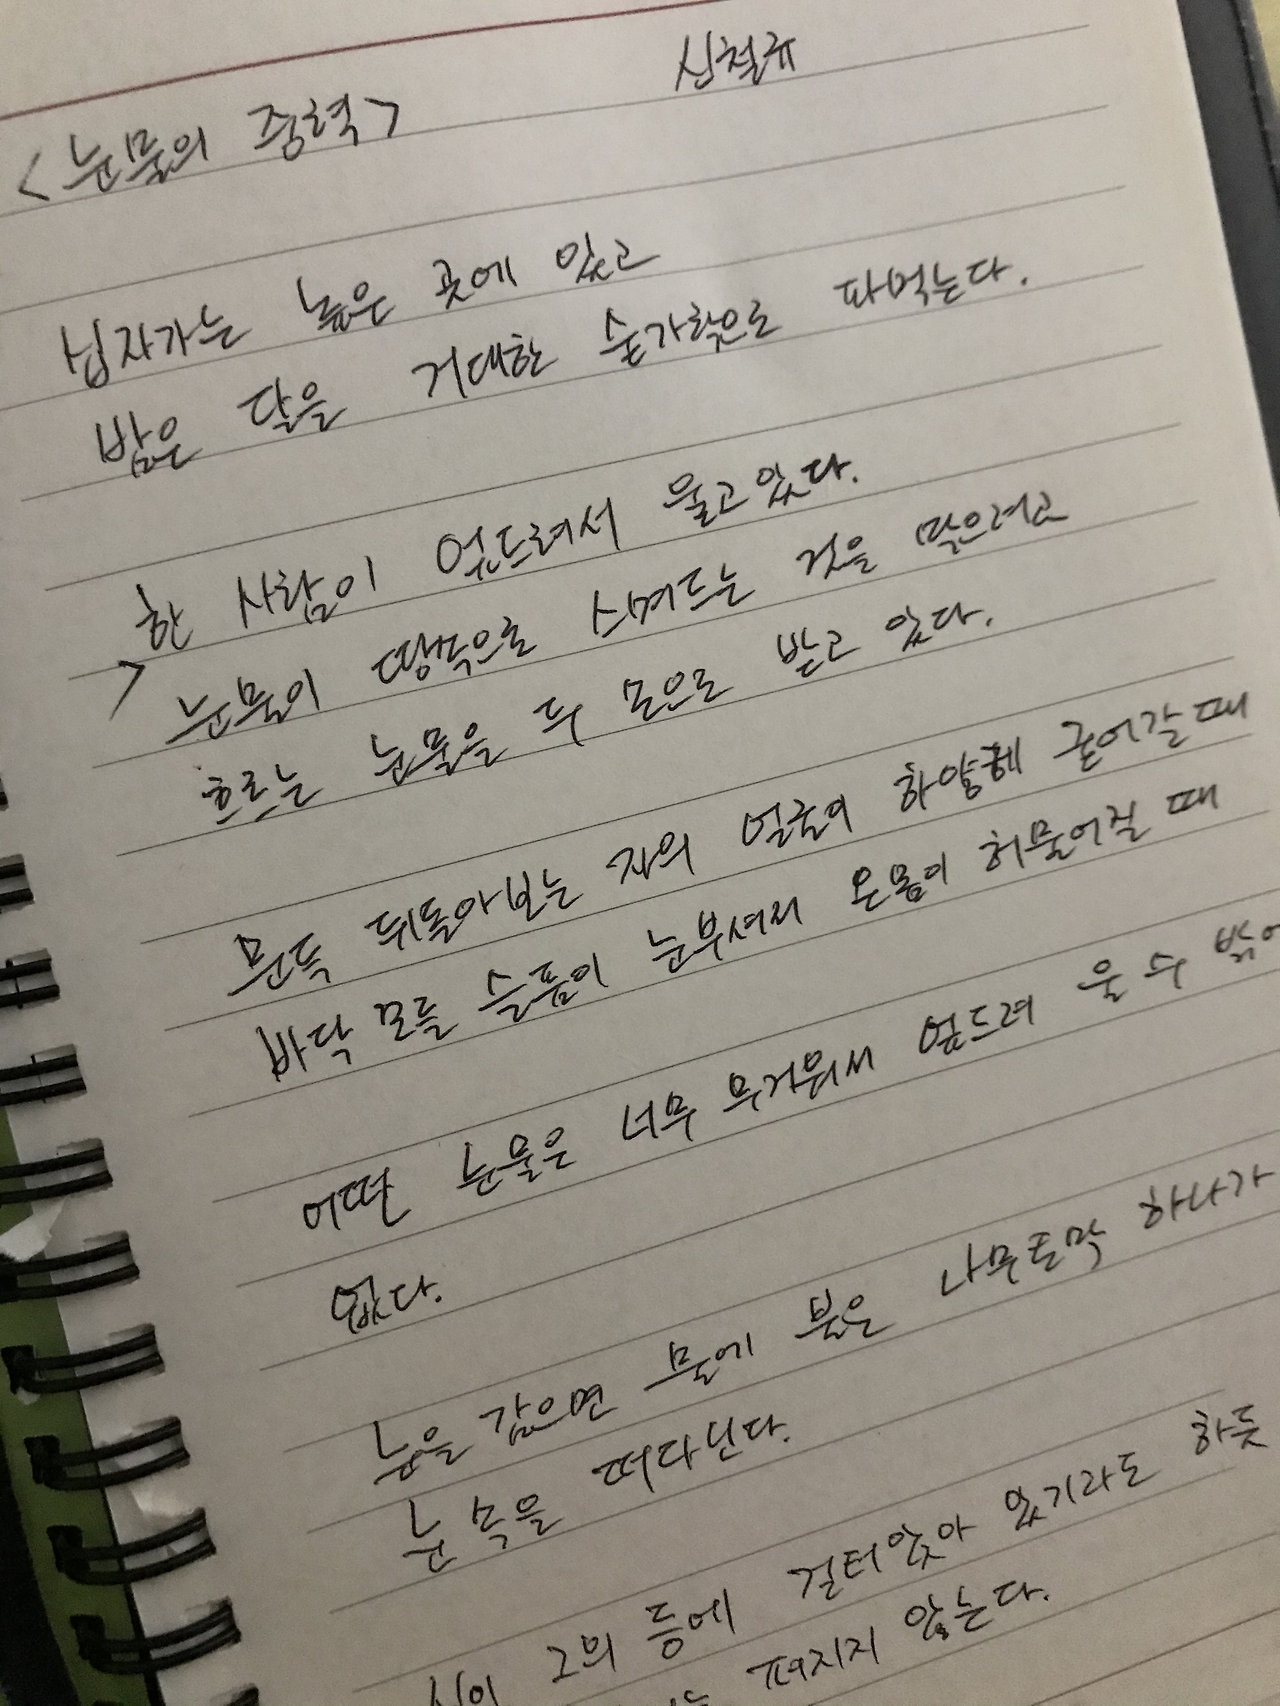 <눈물의 중력>
신철규
십자가는 높은 곳에 있고
밤은 달을 거대한 숟가락으로 파먹는다.
한 사람이 엎드려서 울고있다.
> 눈물이 땅속으로 스며드는 것을 막으려고
흐르는 눈물을 두 손으로 받고 있다.
문득 뒤돌아보는 자의 얼굴이 하얗게 굳어갈 때
바닥 모를 슬픔이 눈부셔서 온몸이 허물어질 때
어떤 눈물은 너무 무거워서 엎드려 울 수 밖에
없다.
눈을 감으면 물에 불은 나무토막 하나가
눈 속을 떠다닌다.
신이 그의 등에 걸터앉아 있기라도 하듯
펴지지 않는다.